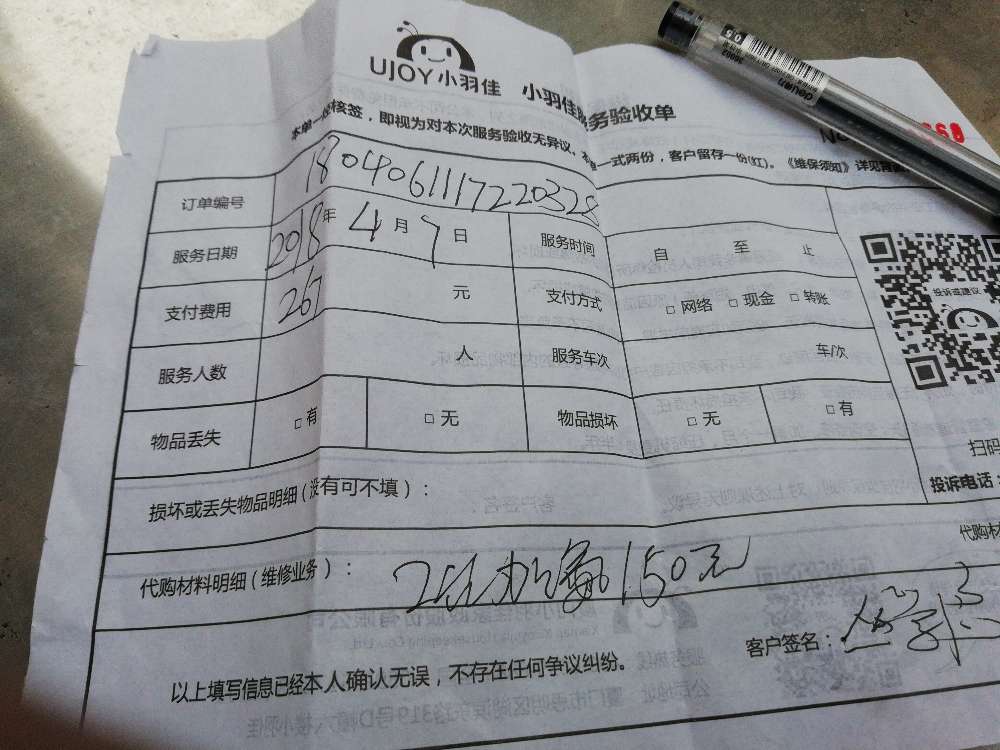 UJOY小羽佳 小羽佳 务验收单
本单一 核签，即视为对本次服务验收无异议。本 一式两份，客户留存一份(红)。《维保须知》详见背
订单编号 180406111722 0328
服务日期 2018年 4月 7日 服务时间 自 至 止
支付费用 267 元 支付方式 □网络 □现金 □转账
服务人数 人 服务车次 车/次
物品丢失 □有 □无 物品损坏 □无 □有
投诉或建议
扫码
投诉电话：
损坏或丢失物品明细（没有可不填）：
代购材料明细（维修业务）： 150元
代购材
客户签名：
以上填写信息已经本人确认无误，不存在任何争议纠纷。
deli
0.5